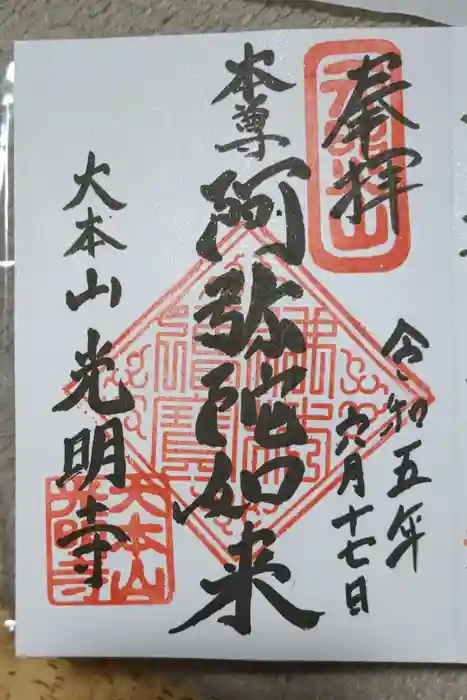 奉拝
令和五年
六月十七日
本尊
阿弥陀如来
大本山 光明寺
大本山
光明寺